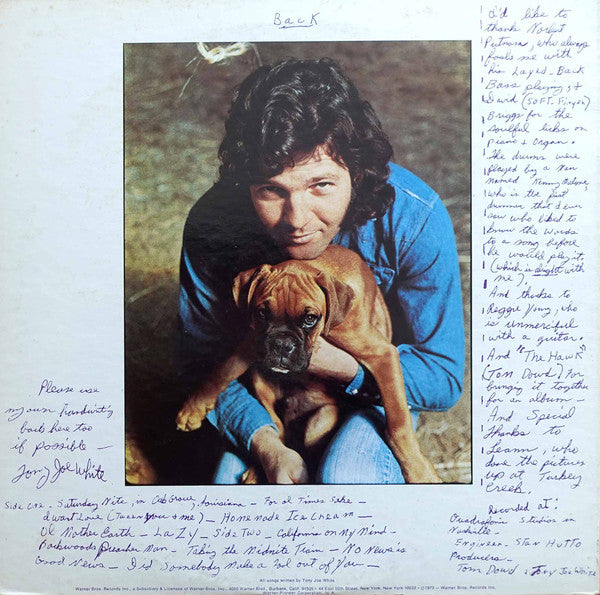 Back
I'd like to
thank Norbert
Putnam, who always
fools me with
his Layed-Back
Bass playing, &
David (SOFT. Finger)
Briggs for the
soulful licks on
piano & Organ.
The drums were
played by a man
named Kenny Malone
who is the first
drummer that I ever
saw who liked to
know the words
to a song before
he would play it.
(which is alright with
me).
And thanks to
Reggie Young, who
is unmerciful
with a guitar.
And "The Hawk"
(Tom Dowd) for
bringing it together
for an album -
And Special
Thanks to
Leann, who
done the pictures
up at Turkey
Creek.
Recorded at:
Quadrafonic Studios in
Nashville -
Engineer - Stan Hutto
Producers -
Tom Dowd & Tony Joe White
Please use
my own handwriting
back here too
if possible -
Tony Joe White
Side One - Saturday Nite, in Oak Grove, Louisiana - For ol Times Sake -
I want Love (Tween you & me) - Homemade Ice Cream -
Ol Mother Earth - Lazy - Side Two - California on My Mind -
Backwoods Preacher Man - Taking the Midnite Train - No News is
Good News - Did Somebody Make a Fool out of You -
All songs written by Tony Joe White
Warner Bros. Records Inc., a Subsidiary & Licensee of Warner Bros. Inc., 4000 Warner Blvd., Burbank, Calif. 91505 • 44 East 50th Street, New York, New York 10022 • ©1973 - Warner Bros. Records Inc.